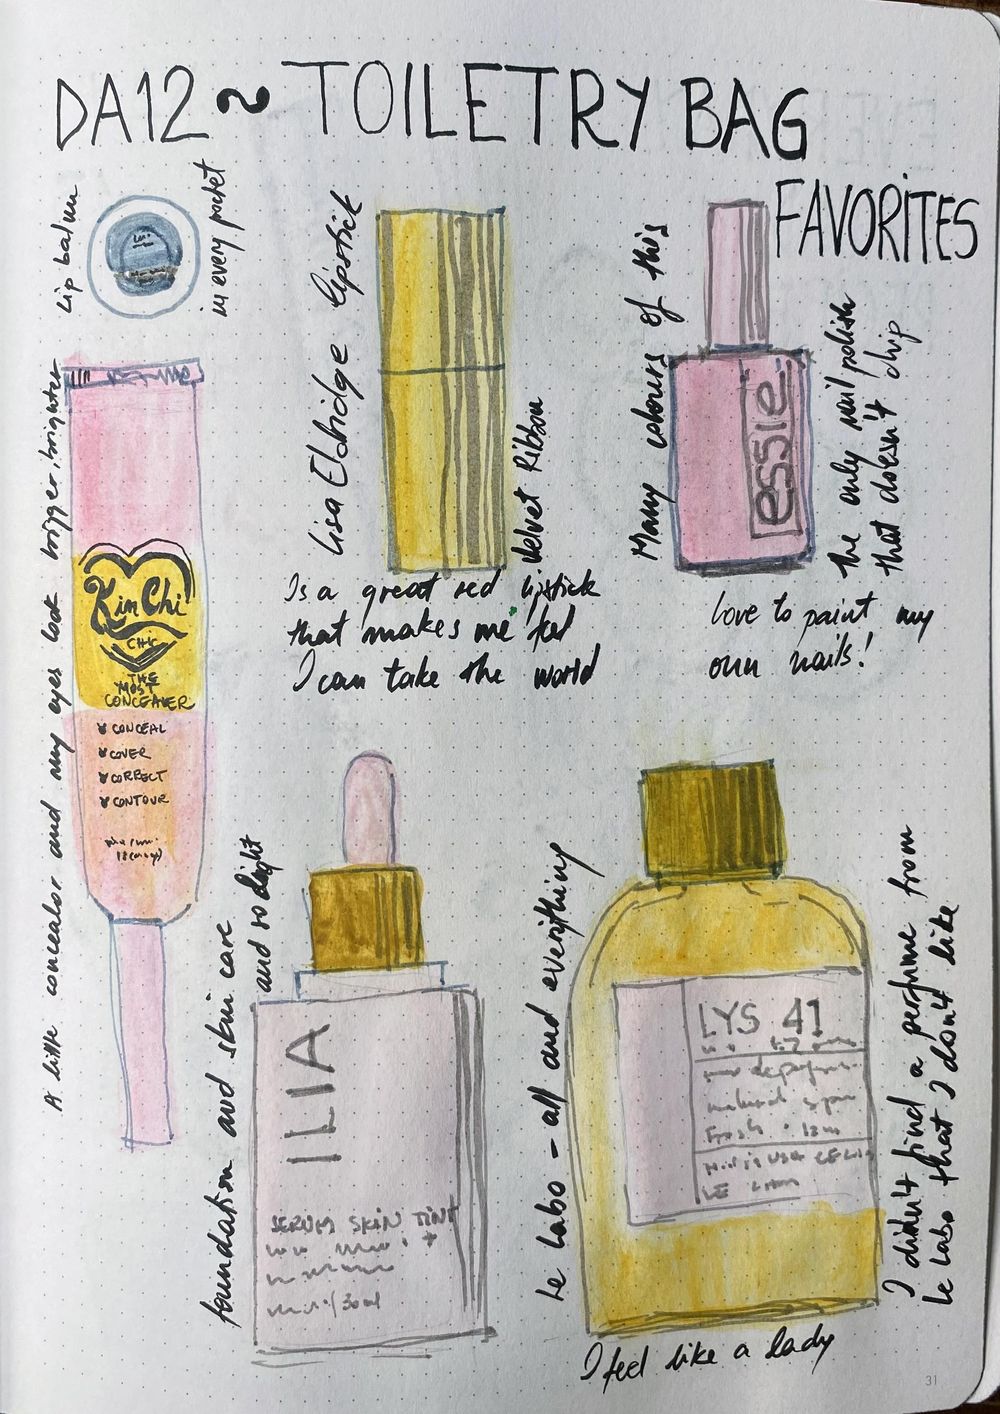 DA12 ~ TOILETRY BAG
FAVORITES
Lip balm
in every pocket
Lisa Eldridge lipstick
Velvet Ribbon
Is a great red lipstick
that makes me feel
I can take the world
Many colours of this
essie
the only nail polish
that doesn't chip
Love to paint my
own nails!
A little concealor and my eyes look bigger, brighter
Kim Chi
CHIC
THE
MOST
CONCEALER
CONCEAL
COVER
CORRECT
CONTOUR
foundation and skin care
and so light
ILIA
SERUM SKIN TINT
30ml
Le Labo - all and everything
LYS 41
I didn't find a perfume from
Le Labo that I don't like
I feel like a lady
31